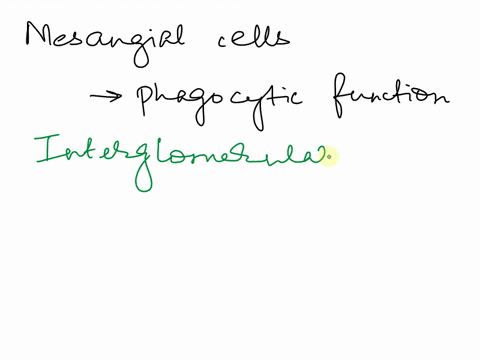 Mesangial cells
→ phagocytic function
Interglomerular